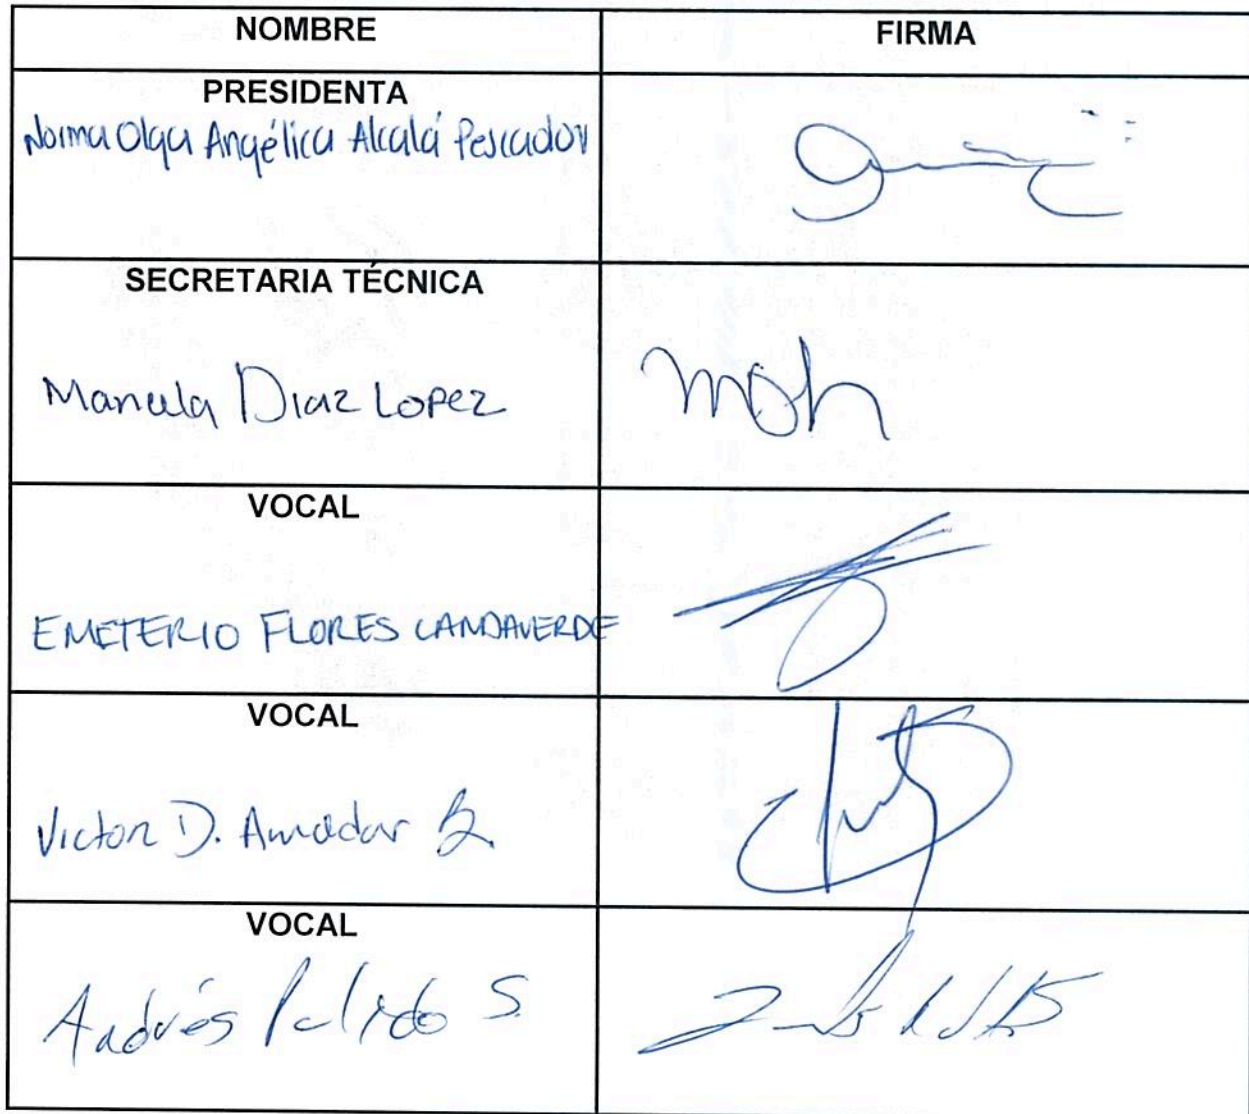 NOMBRE
FIRMA
PRESIDENTA
Norma Olga Angélica Alcalá Pescador
SECRETARIA TÉCNICA
Manuela Diaz Lopez
MDL
VOCAL
EMETERIO FLORES LANDAVERDE
VOCAL
Victor D. Amador B.
VOCAL
Andrés Pulido S.